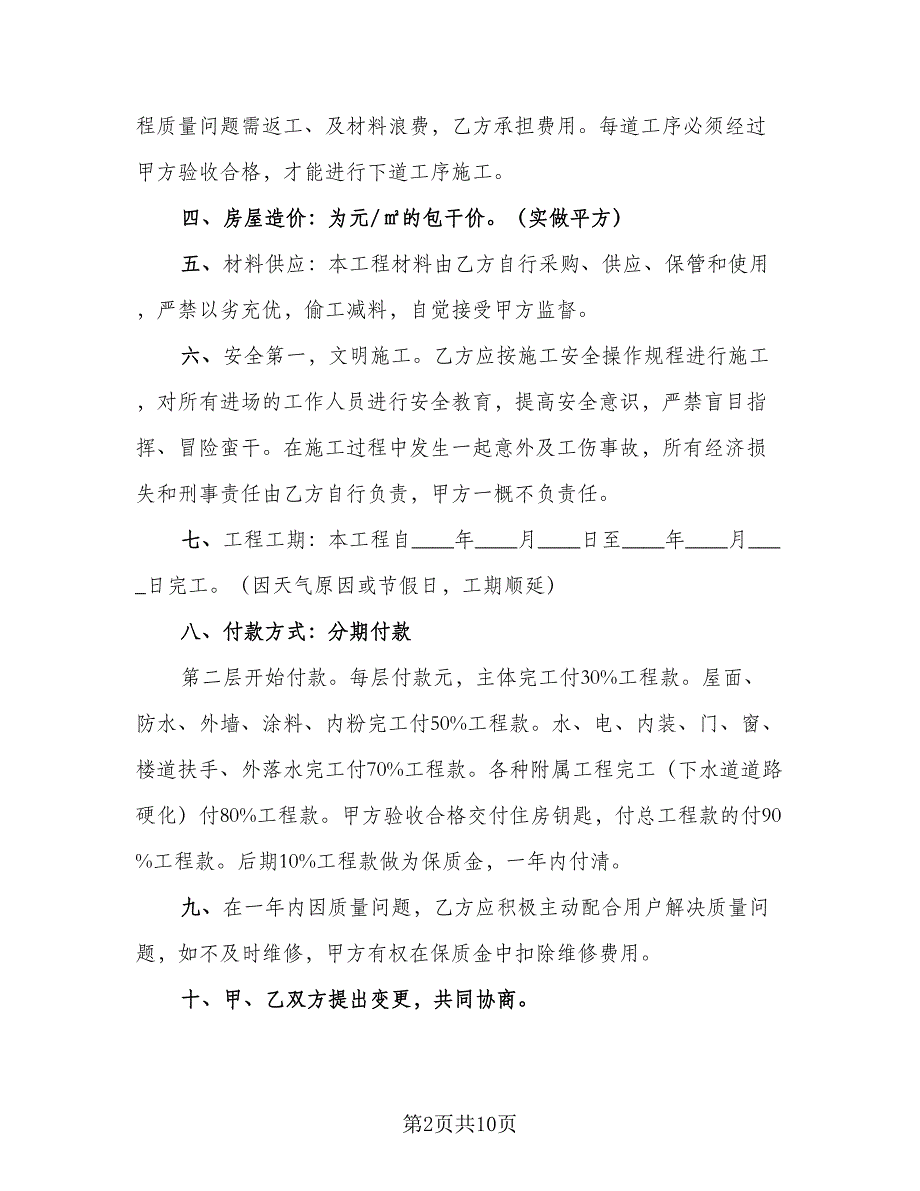 程质量问题需返工、及材料浪费，乙方承担费用。每道工序必须经过
甲方验收合格，才能进行下道工序施工。
四、房屋造价：为元/㎡的包干价。（实做平方）
五、材料供应：本工程材料由乙方自行采购、供应、保管和使用
，严禁以劣充优，偷工减料，自觉接受甲方监督。
六、安全第一，文明施工。乙方应按施工安全操作规程进行施工
，对所有进场的工作人员进行安全教育，提高安全意识，严禁盲目指
挥、冒险蛮干。在施工过程中发生一起意外及工伤事故，所有经济损
失和刑事责任由乙方自行负责，甲方一概不负责任。
七、工程工期：本工程自____年____月____日至____年____月___
_日完工。（因天气原因或节假日，工期顺延）
八、付款方式：分期付款
第二层开始付款。每层付款元，主体完工付30%工程款。屋面、
防水、外墙、涂料、内粉完工付50%工程款。水、电、内装、门、窗、
楼道扶手、外落水完工付70%工程款。各种附属工程完工（下水道道路
硬化）付80%工程款。甲方验收合格交付住房钥匙，付总工程款的付90
%工程款。后期10%工程款做为保质金，一年内付清。
九、在一年内因质量问题，乙方应积极主动配合用户解决质量问
题，如不及时维修，甲方有权在保质金中扣除维修费用。
十、甲、乙双方提出变更，共同协商。
第2页共10页